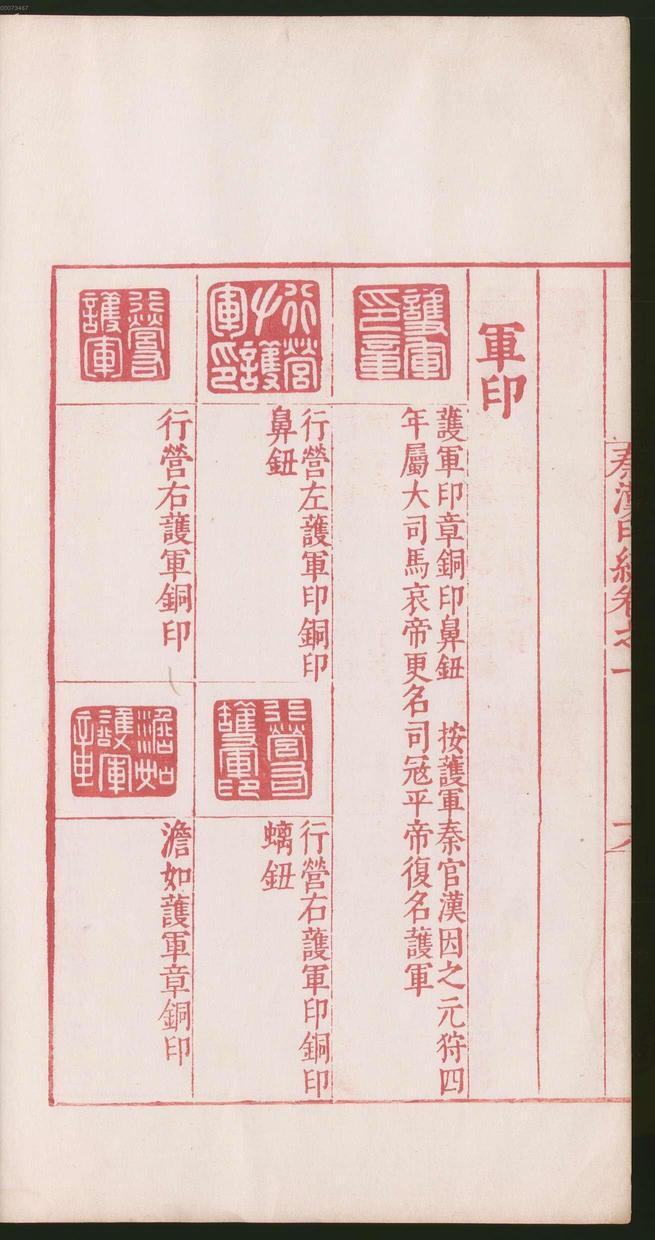 00073467
秦漢印統卷之一
軍印
護軍印章
䕶軍印章銅印鼻鈕 按䕶軍秦官漢因之元狩四
年屬大司馬哀帝更名司冦平帝復名䕶軍
行營左護軍印
行營左䕶軍印銅印
鼻鈕
行營右護軍印
行營右䕶軍印銅印
螭鈕
行營右護軍
行營右䕶軍銅印
澹如護軍章
澹如䕶軍章銅印